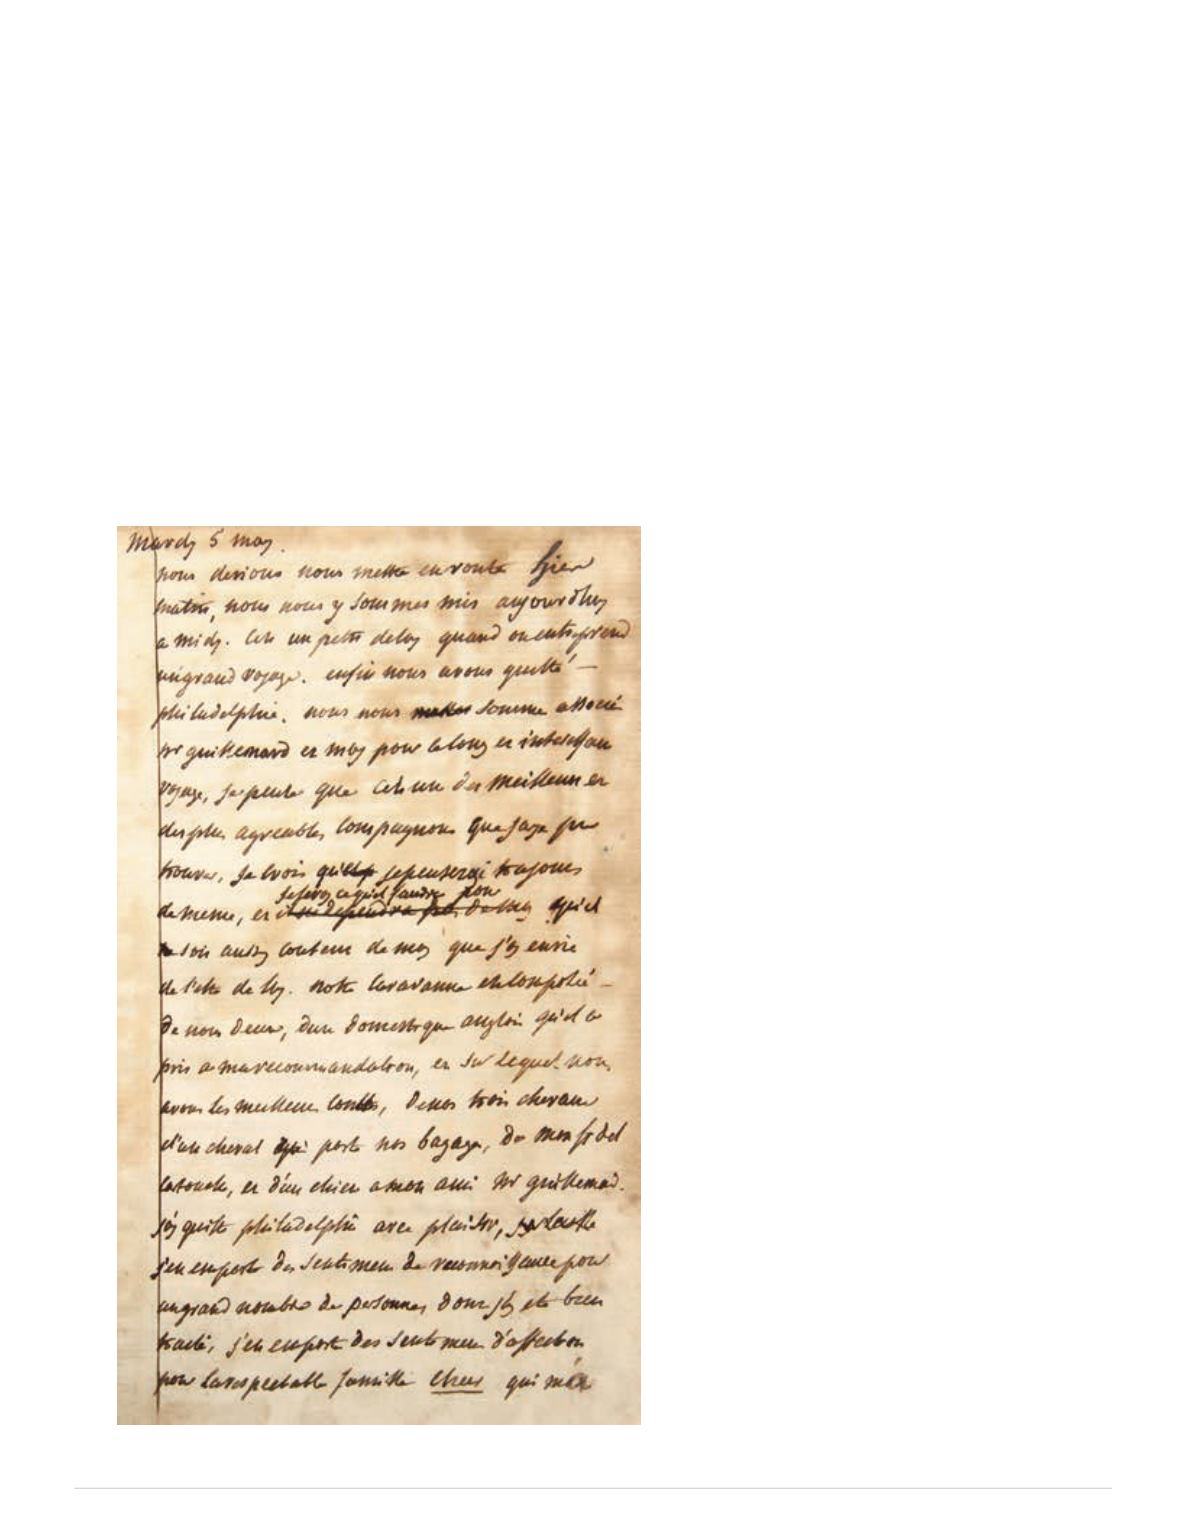 Mardy 5 may.
nous devions nous mettre en route hier
matin, nous nous y sommes mis aujourdhuy
a midy. Cest un petit delay quand on entreprend
un grand voyage. enfin nous avons quitté
philadelphie. nous nous somme associé
Mr guillemard et moy pour ce long et interessant
voyage, je pense que cest un des meilleurs et
des plus agreables compagnons que jaye pu
trouver, je crois que je penserai toujours
je feray ce qu'il faudra pour
de meme, et il ne dependra pas de moy qu'il
ne soit aussy content de moy que j'ay envie
de l'etre de luy. notre caravanne est composée
de nous deux, d'un domestique anglois qu'il a
pris a ma recommandation, et sur lequel nous
avons les meilleurs, de nos trois chevaux
d'un cheval qui porte nos bagages, de mon
et d'un chien a mon ami Mr guillemard.
j'ay quitté philadelphie avec plaisir,
j'en emporte des sentimens de reconnoissance pour
un grand nombre de personnes dont j'ay eté bien
traité, j'en emporte des sentimens d'affection
pour la respectable famille Chew qui m'a